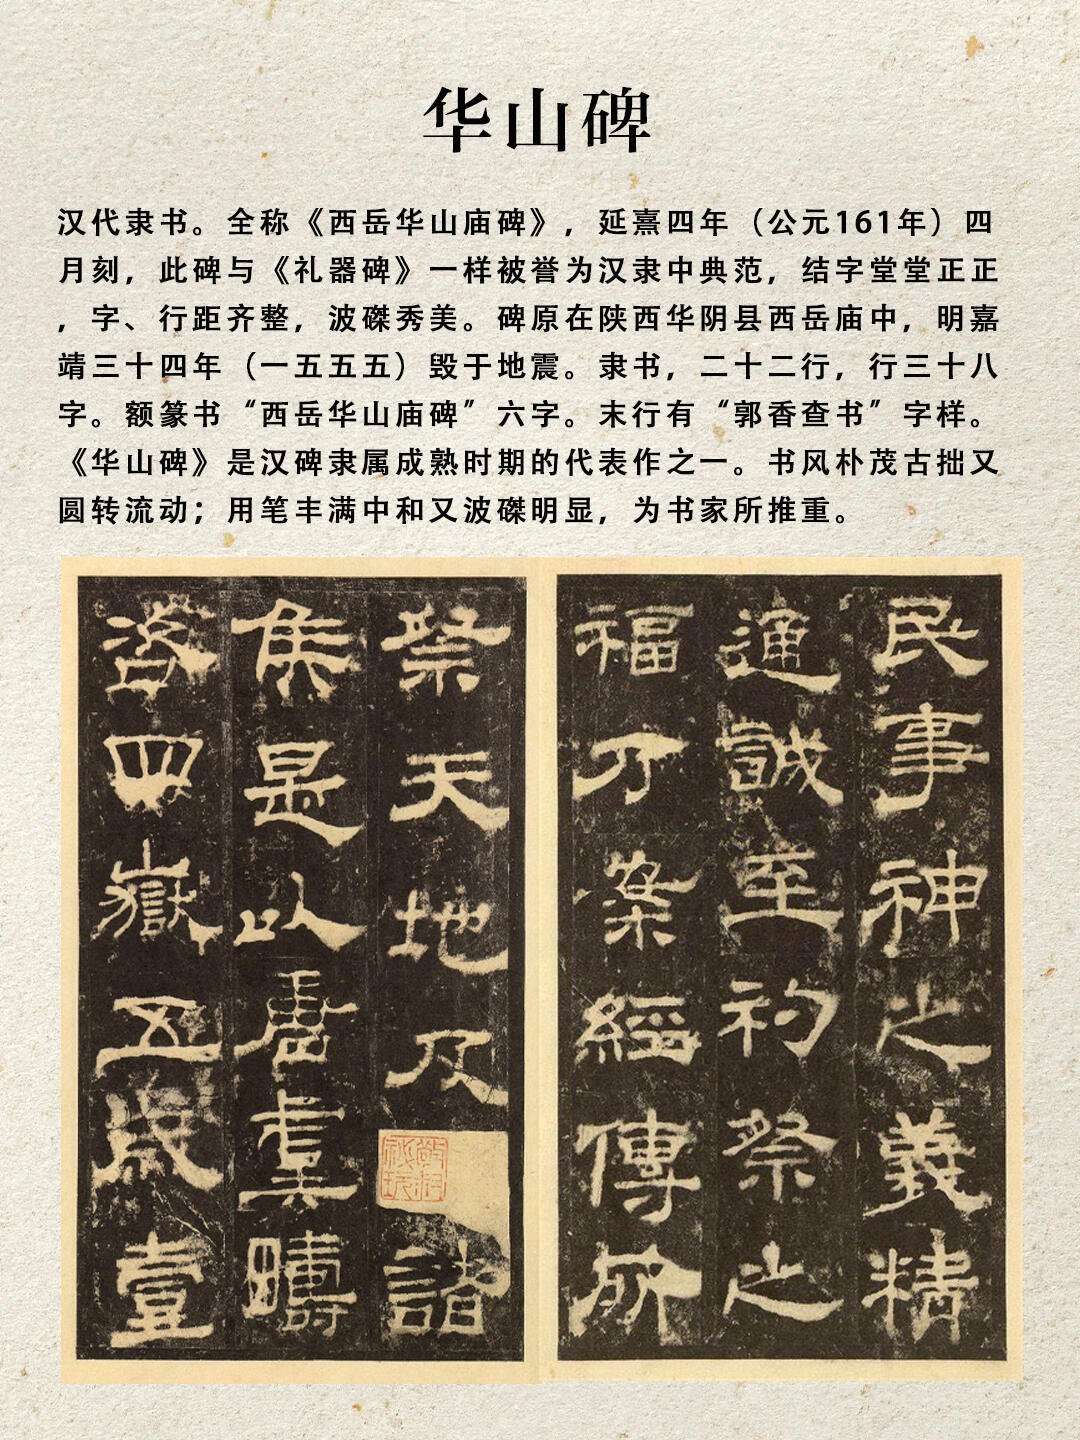 华山碑
汉代隶书。全称《西岳华山庙碑》，延熹四年（公元161年）四
月刻，此碑与《礼器碑》一样被誉为汉隶中典范，结字堂堂正正
，字、行距齐整，波磔秀美。碑原在陕西华阴县西岳庙中，明嘉
靖三十四年（一五五五）毁于地震。隶书，二十二行，行三十八
字。额篆书“西岳华山庙碑”六字。末行有“郭香查书”字样。
《华山碑》是汉碑隶属成熟时期的代表作之一。书风朴茂古拙又
圆转流动；用笔丰满中和又波磔明显，为书家所推重。
民事神之義精
通誠至礿祭之
福乃案經傳所
祭天地及諸
侯是以唐虞疇
咨四嶽五歲壹